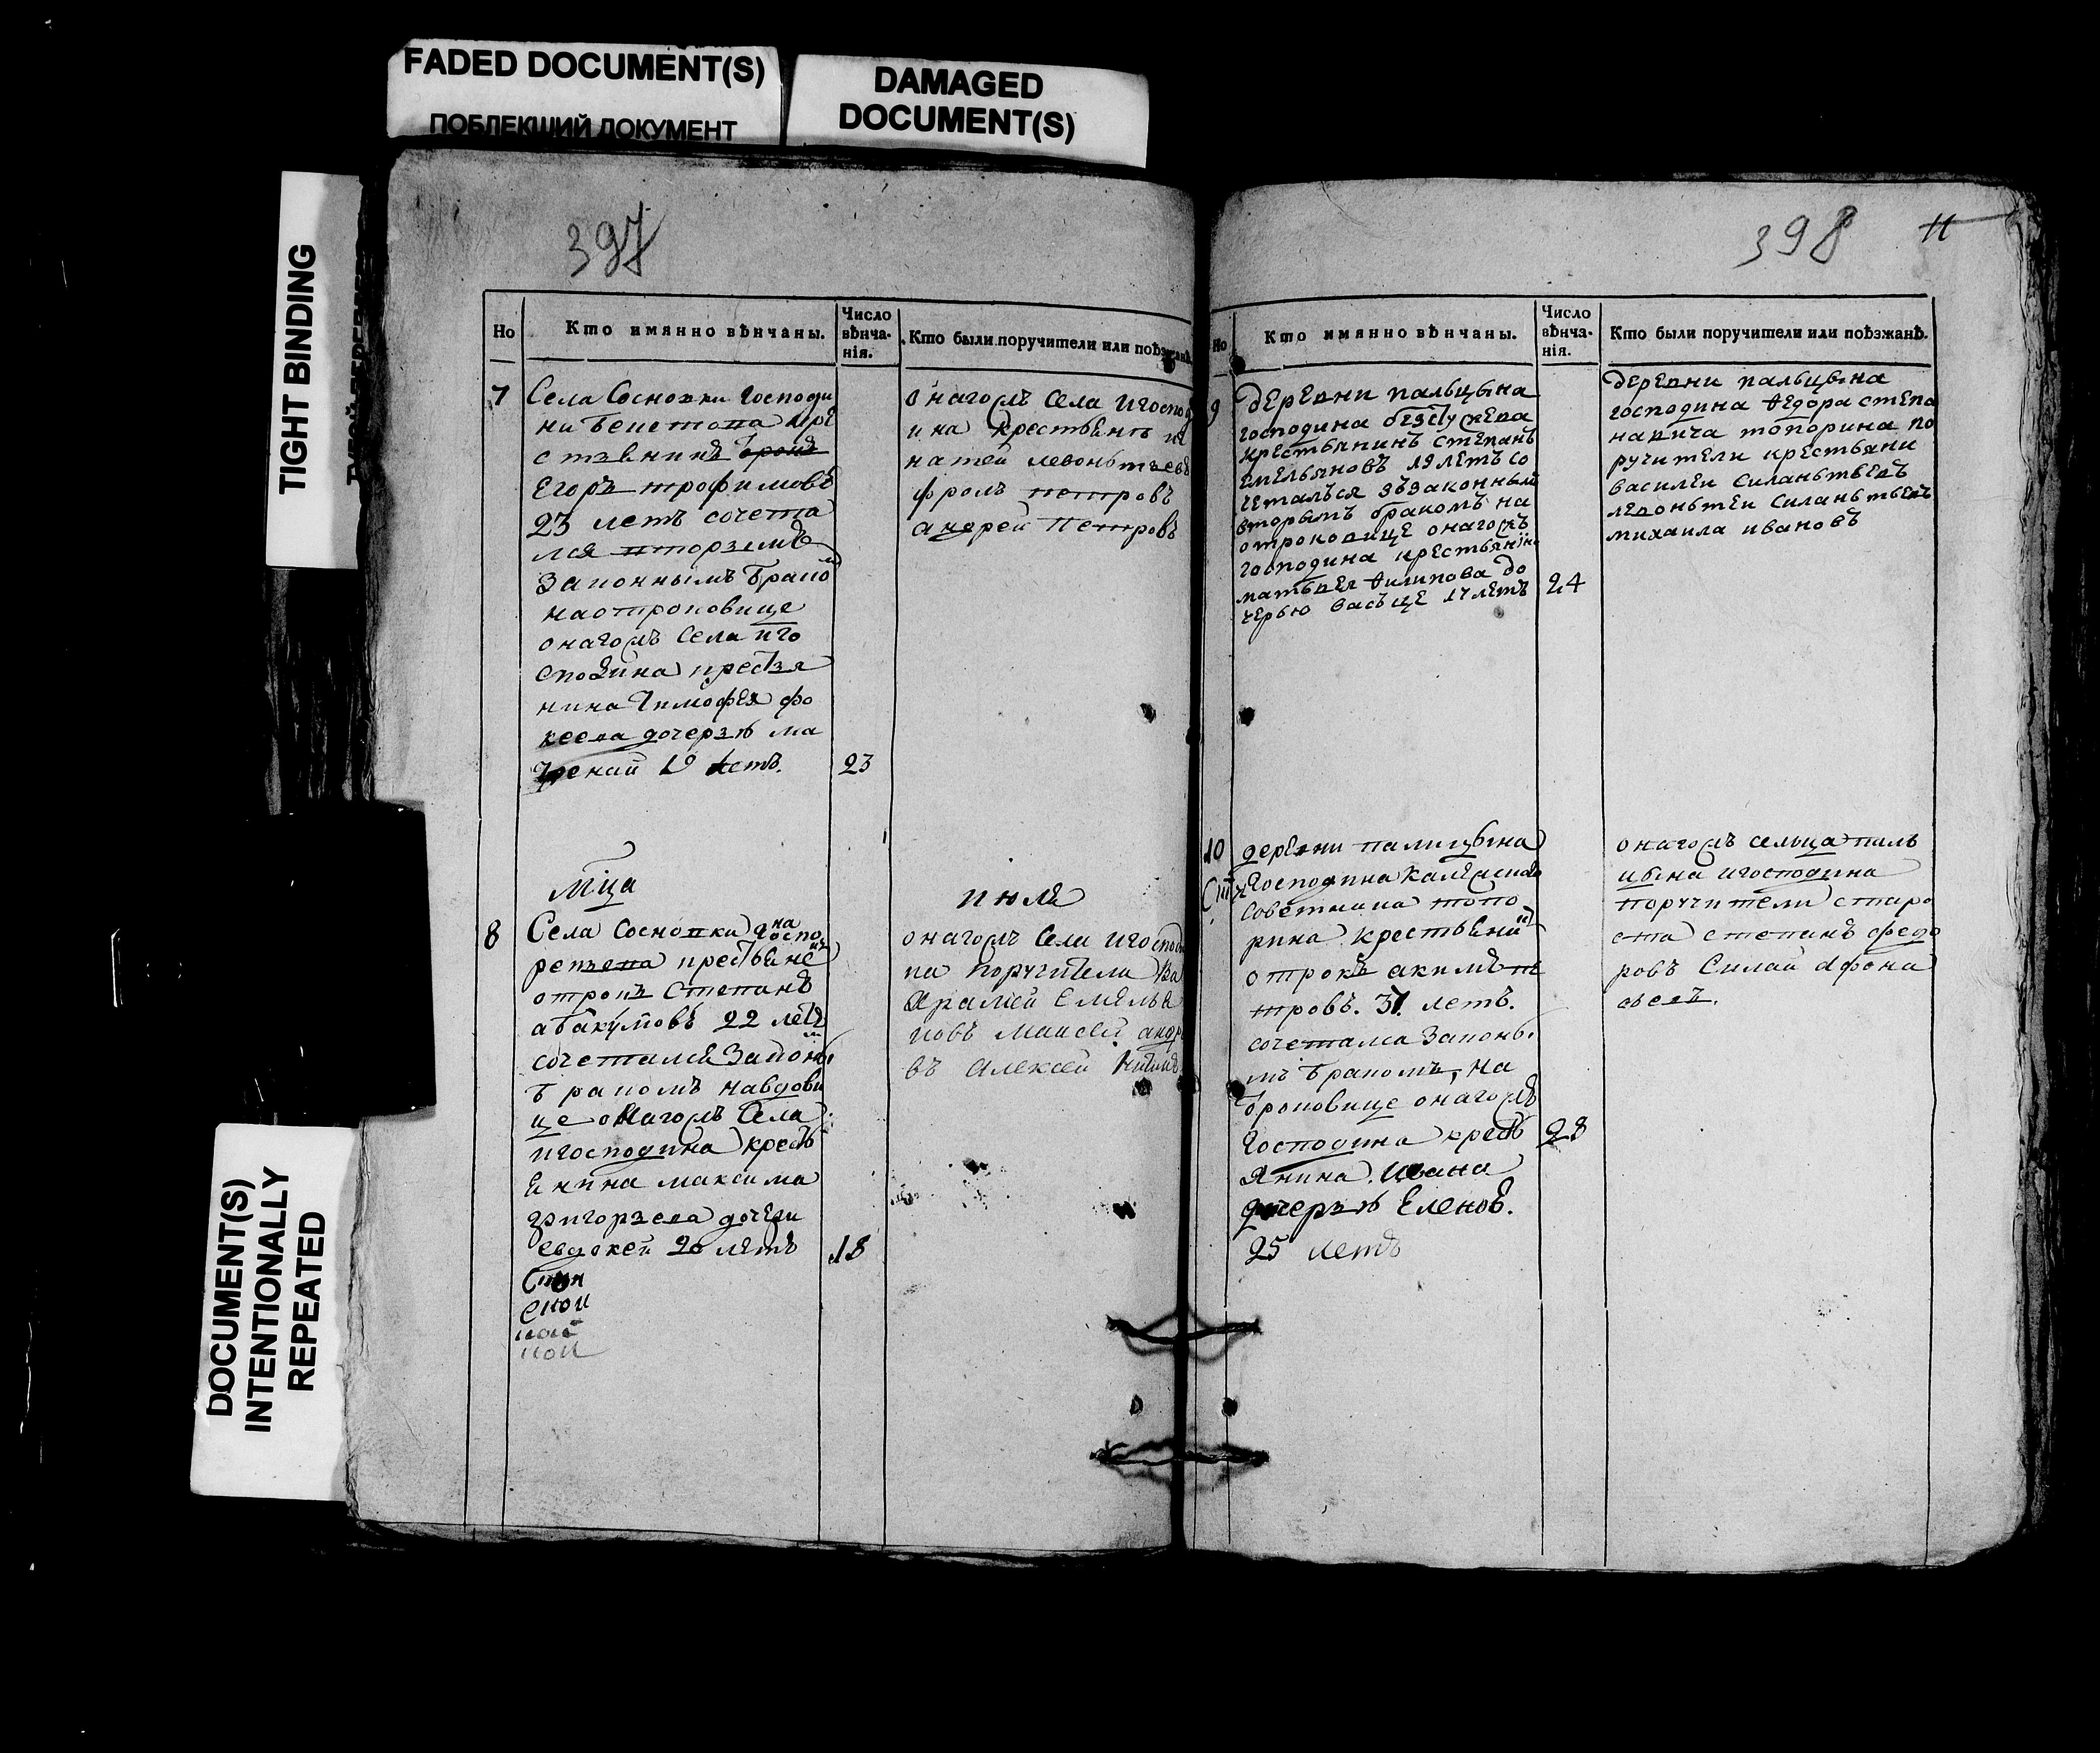 FADED DOCUMENT(S)
ПОБЛЕКШИЙ ДОКУМЕНТ
DAMAGED
DOCUMENT(S)
TIGHT BINDING
DOCUMENT(S)
INTENTIONALLY
REPEATED
397
Но
Кто имянно вѣнчаны.
Число
вѣнча-
нія.
Кто были поручители или поѣзжанѣ.
7
Села Сосновки Господи
Егоръ трофимовъ
23 летъ сочета
лся
законнымъ бракомъ
на отроковице
онагожъ села и го
сподина крестья
нина Тимофея фо
кеева дочерью ма
19 летъ.
23
онагожъ Села и господ
ина крестьянъ
левонътьевъ
фролъ петровъ
андрей Петровъ
мца
июля
8
Села Сосновки госпо
отрокъ Степанъ
абакумовъ 22 летъ
сочетался законы
бракомъ на вдови
це онагожъ Села
и господина кресть
янина максима
григорьева дочери
евдокеи 20 летъ
18
онагожъ Села и господи
на поручители Ва
Емелья
новъ Маисей андре
въ Алексей
398
11
Но
Кто имянно вѣнчаны.
Число
вѣнча-
нія.
Кто были поручители или поѣзжанѣ.
9
деревни пальцына
господина
крестьянинъ степанъ
емельяновъ 19 летъ со
четалъся зъзаконным
вторымъ бракомъ на
отроковице онагожъ
господина крестьянина
матвея филипова до
черью васъце 17 летъ
24
деревни пальцына
господина федора степа
навича топорина по
ручители крестьяни
василеи силаньтьевъ
левоньтеи силаньтьевъ
михаила ивановъ
10
деревни палицына
господина
советника топо
рина крестьянинъ
отрокъ акимъ пе
тровъ. 31 летъ.
сочетался законы
мъ бракомъ, на
броковице онагожъ
Господина кресть
янина Ивана
дочерью Еленоѣ.
25 летъ
28
онагожъ сельца паль
цына и господина
поручители старо
ста степанъ федо
ровъ Силай афона
сьевъ.